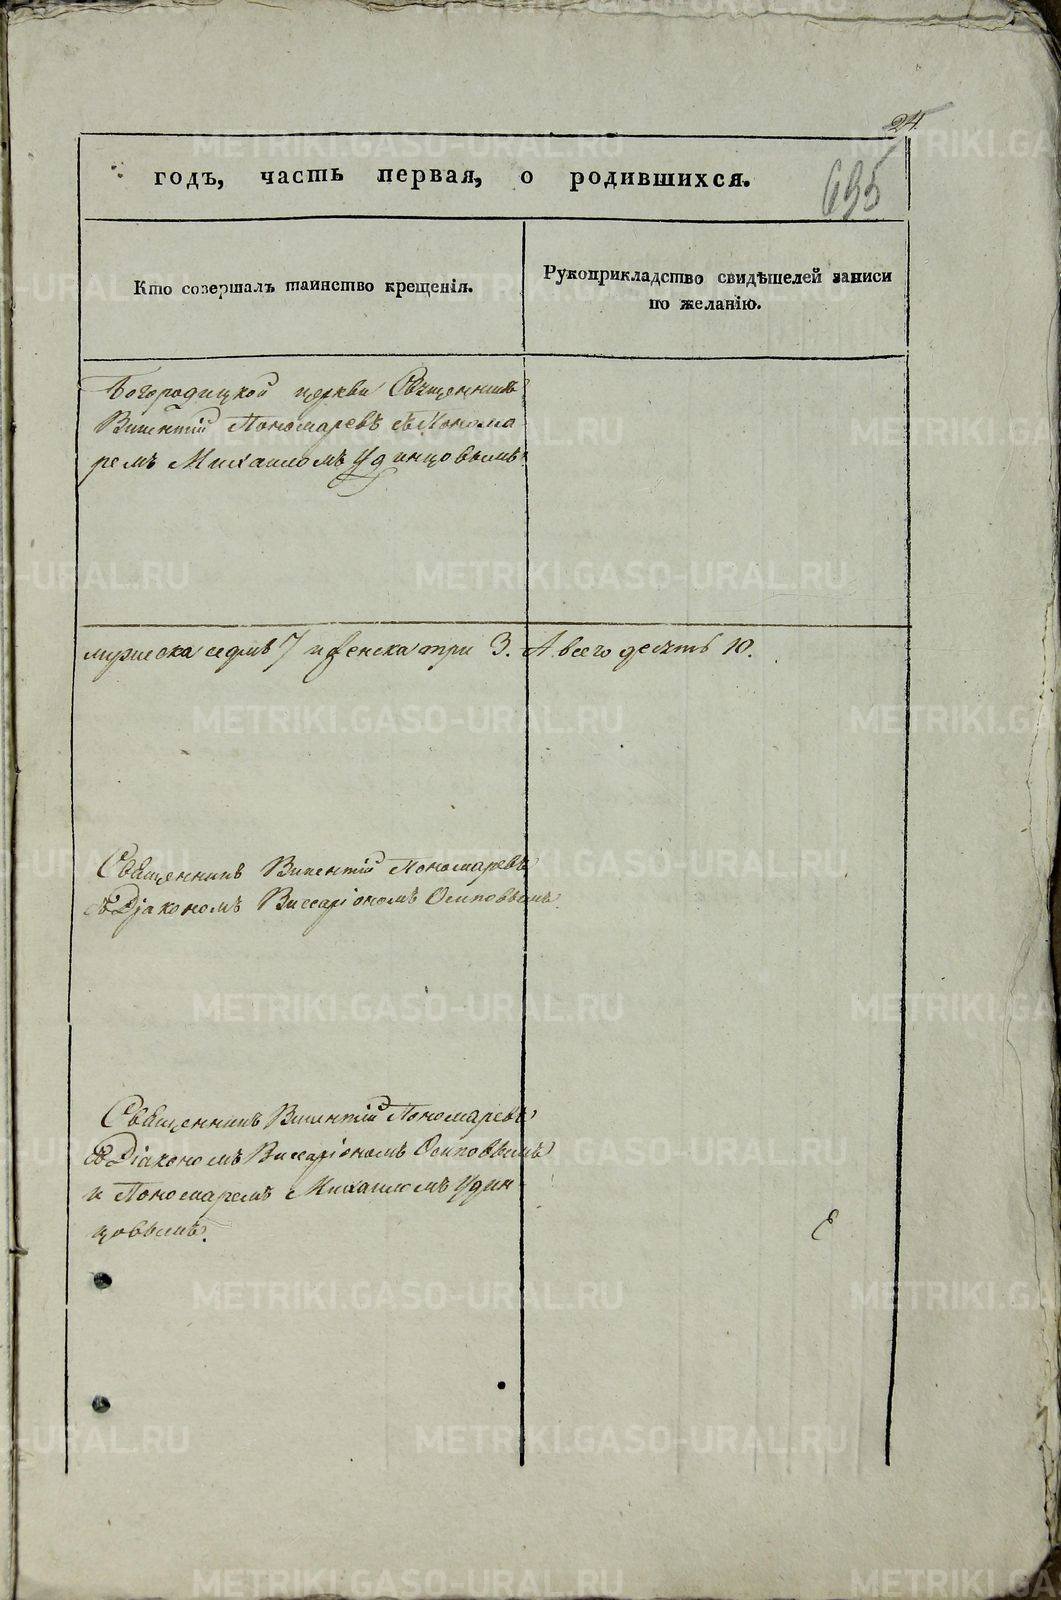 24
годъ, часть первая, о родившихся.
695
Кто совершалъ таинство крещенія.
Рукоприкладство свидѣтелей записи
по желанію.
Богородицкой церкви Священникъ
Викентій Пономаревъ съ Понома
ремъ Михаиломъ Удинцовымъ.
мужеска седмь 7 и женска три 3. А всего десять 10.
Священникъ Викентій Пономаревъ
съ Діакономъ Виссаріономъ Осиповымъ.
Священникъ Викентій Пономаревъ
съ Діакономъ Виссаріономъ Осиповымъ
и Пономаремъ Михаиломъ Удин
цовымъ.
METRIKI.GASO-URAL.RU